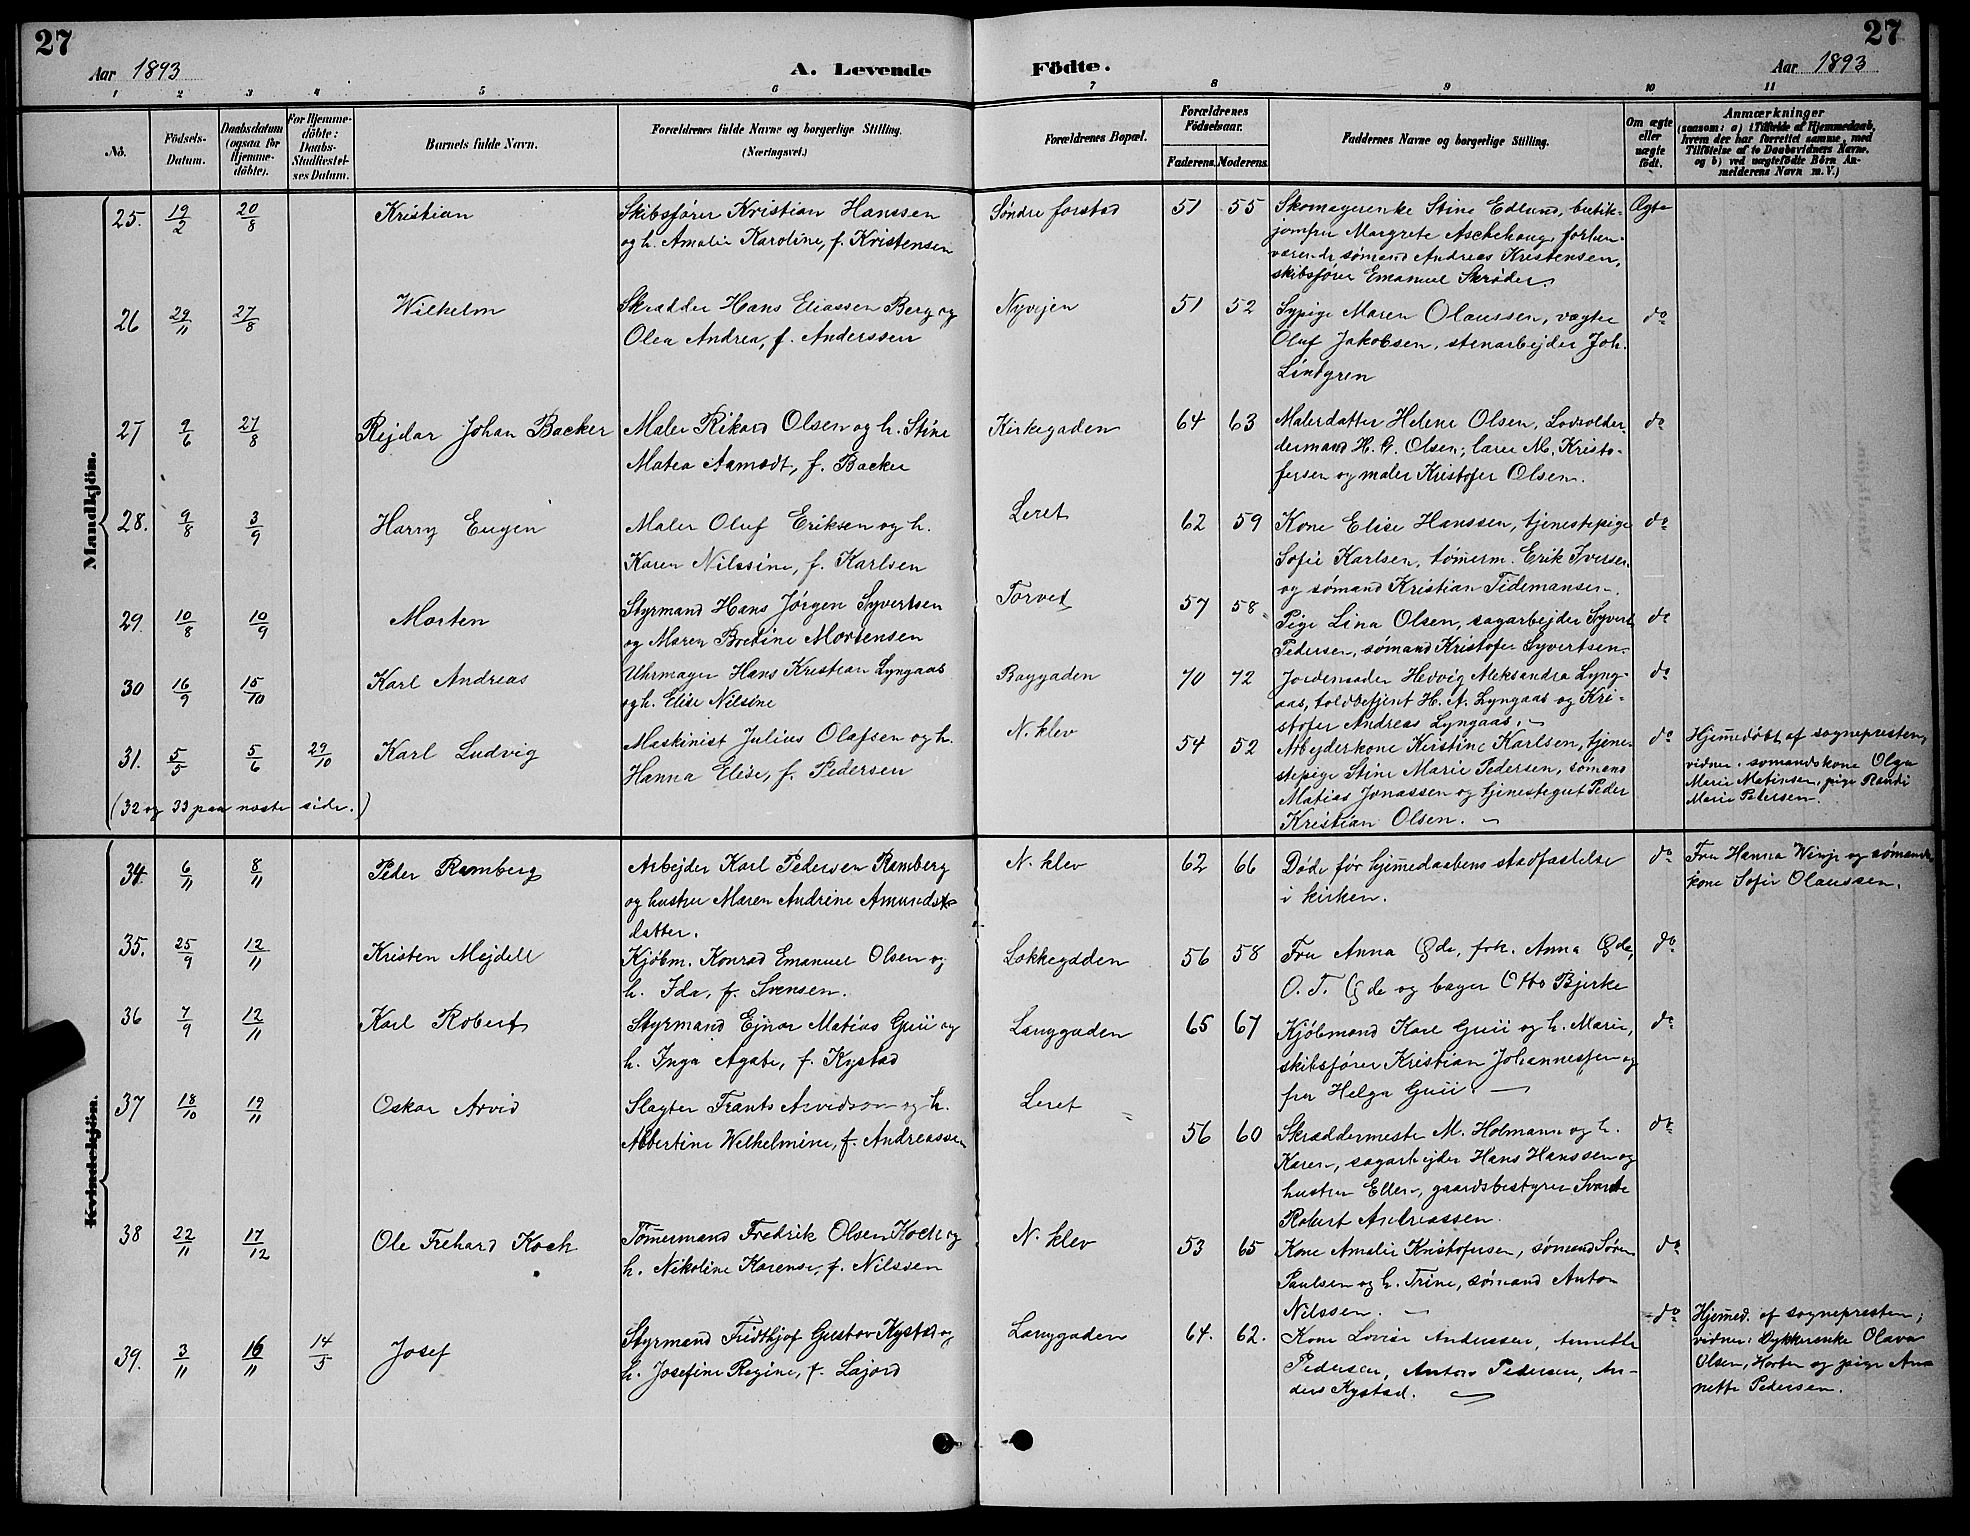 27
Aar 1893
A. Levende Födte.
27
Aar 1893
1 2 3 4 5 6 7 8 9 10 11
No.
Födsels-Datum.
Daabsdatum (ogsaa for Hjemme-döbte).
For Hjemme-döbte: Daabs-Stadfæstel-ses Datum.
Barnets fulde Navn.
Forældrenes fulde Navne og borgerlige Stilling.
(Næringsvei.)
Forældrenes Bopæl.
Forældrenes Födselsaar.
Faderens. Moderens.
Faddernes Navne og borgerlige Stilling.
Om ægte eller uægte födt.
Anmærkninger
(saasom: a) i Tilfælde af Hjemmedaab,
hvem der har forrettet samme, med
Tilföielse af to Daabsvidners Navne,
og b) ved uægtefödte Börn An-
melderens Navn m. V.)
Mandkjön.
25. 19/2 20/8 Kristian
Skibsfører Kristian Hanssen
og h. Amalie Karoline, f. Kristensen
Søndre forstad 51 55
Skomagerenke Stine Edlund, butik-
jomfru Margrete Aschehoug, forhen-
værende sømand Andreas Kristensen,
skibsfører Emanuel Skrøder.
Ægte
26 29/11 27/8 Wilhelm
Skrædder Hans Eliassen Berg og
Olea Andrea, f. Anderssen
Nyvejen 51 52
Sypige Maren Olaussen, vægter
Oluf Jakobsen, stenarbejder Joh.
Lindgren
do
27 9/6 27/8 Rejdar Johan Backer
Maler Rikard Olsen og h. Stine
Matea Aamodt, f. Backer
Kirkegaden 64 63
Malerdatter Helene Olsen, Lodsolder-
dermand H. G. Olsen, lærer M. Kristo-
fersen og maler Kristofer Olsen.
do
28. 9/8 3/9 Harry Eugen
Maler Oluf Eriksen og h.
Karen Nilssine, f. Karlsen
Leret 62 59
Kone Elise Hanssen, tjenestepige
Sofie Karlsen, tømerm. Erik Iversen
og sømand Kristian Tidemansen.
do
29. 10/8 10/9 Morten
Styrmand Hans Jörgen Syvertsen
og Maren Bretine Mortensen
Torvet 57 58
Pige Lina Olsen, sagarbejder Syvert
Pedersen, sømand Kristofer Syvertsen.
do
30 16/9 15/10 Karl Andreas
Uhrmager Hans Kristian Lyngaas
og h. Elise Nilsine
Baggaden 70 72
Jordemoder Hedvig Aleksandra Lyng-
aas, toldbetjent H. A. Lyngaas og Kri-
stofer Andreas Lyngaas.
do
31. 5/5 5/6 29/10 Karl Ludvig
Maskinist Julius Olafsen og h.
Hanna Elise, f. Pedersen
N. klev 54 52
Arbejderkone Kirstine Karlsen, tjene-
stepige Stine Marie Pedersen, sømand
Matias Jonassen og tjenestegut Peder
Kristian Olsen.
do
Hjemedøbt af sognepresten,
vidner: sømandskone Olga
Marie Matisen, pige Randi
Marie Petersen.
(32 og 33 paa næste side.)
Kvindekjön.
34. 6/11 8/11 Peder Ramberg
Arbejder Karl Pedersen Ramberg
og hustru Maren Andrine Amunds-
datter.
N. klev 62 66
Døde før hjemedaabens stadfæstelse
i kirken.
do
Fru Hanna Winje og sømands
kone Sofie Olaussen.
35. 25/9 12/11 Kristen Mejdell
Kjøbm. Konrad Emanuel Olsen og
h. Ida, f. Svensen.
Løkkegaden 56 58
Fru Anna Øde, frk. Anna Øde,
O. T. Øde og bager Otto Bjerke
do
36 7/9 12/11 Karl Robert
Styrmand Ejnar Matias Guii og
h. Inga Agate, f. Kystad
Langgaden 65 67
Kjöbmand Karl Guii og h. Marie,
skibsfører Kristian Johannesen og
fru Helga Guii.
do
37 18/10 19/11 Oskar Arvid
Slagter Frants Arvidson og h.
Albertine Wilhelmine, f. Andreassen
Leret 56 60
Skræddermester M. Holmann og h.
Karen, sagarbejder Hans Hanssen og
hustru Ellen, gaardsbestyrer Svante
Robert Andreassen.
do
38 22/11 17/12 Ole Frehard Koch
Tømermand Fredrik Olsen Koch og
h. Nikoline Karense, f. Nilssen
N. klev 53 65
Kone Amalie Kristofersen, sømand Søren
Paulsen og h. Trine, sømand Anton
Nilssen.
do
39. 3/11 16/11 14/5 Josef
Styrmand Fridthjof Gustav Kystad og
h. Josefine Regine, f. Lajord
Langgaden 64. 62.
Kone Lovise Anderssen, Annette
Pedersen, Anton Pedersen, An-
ders Kystad.
do
Hjemed. af sognepresten;
vidner: Dykkerenke Olava
Olsen, Horten og pige An-
nette Pedersen.